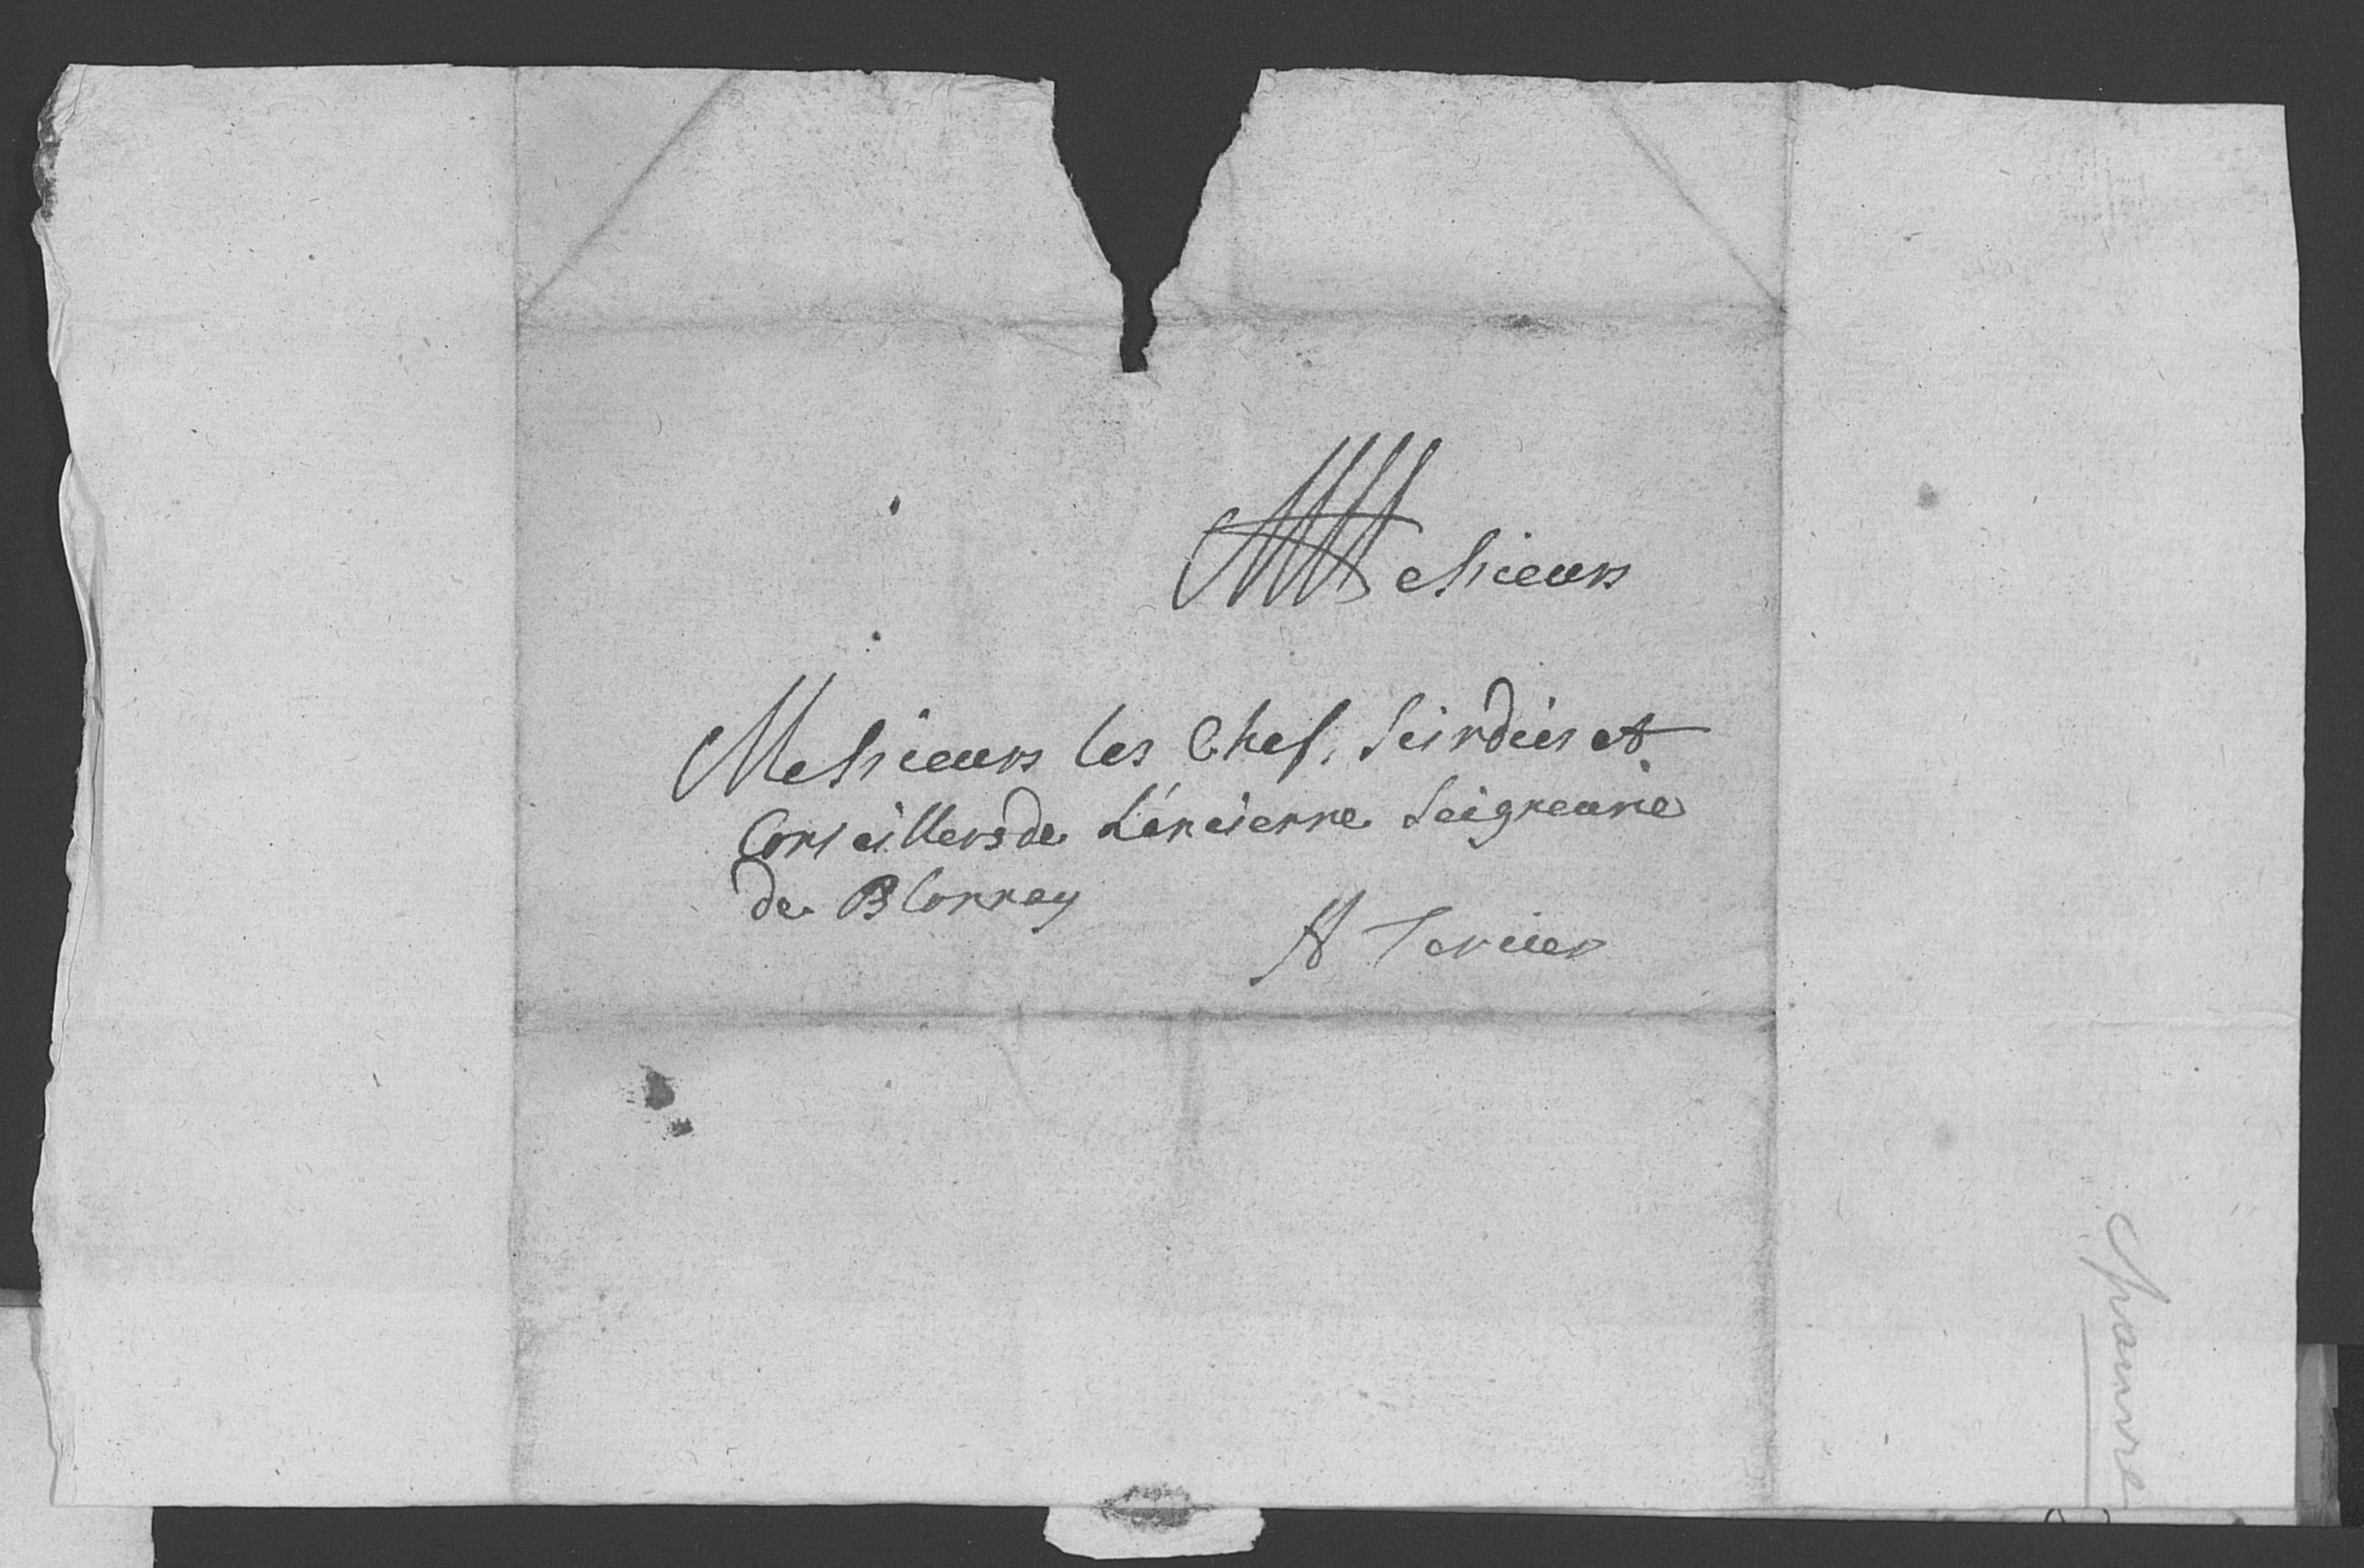 Messieurs
Messieurs les Chef, Sindics et
Conseillers de L'ancienne Seigneurie
de Blonnay
A Tercier
pauvre